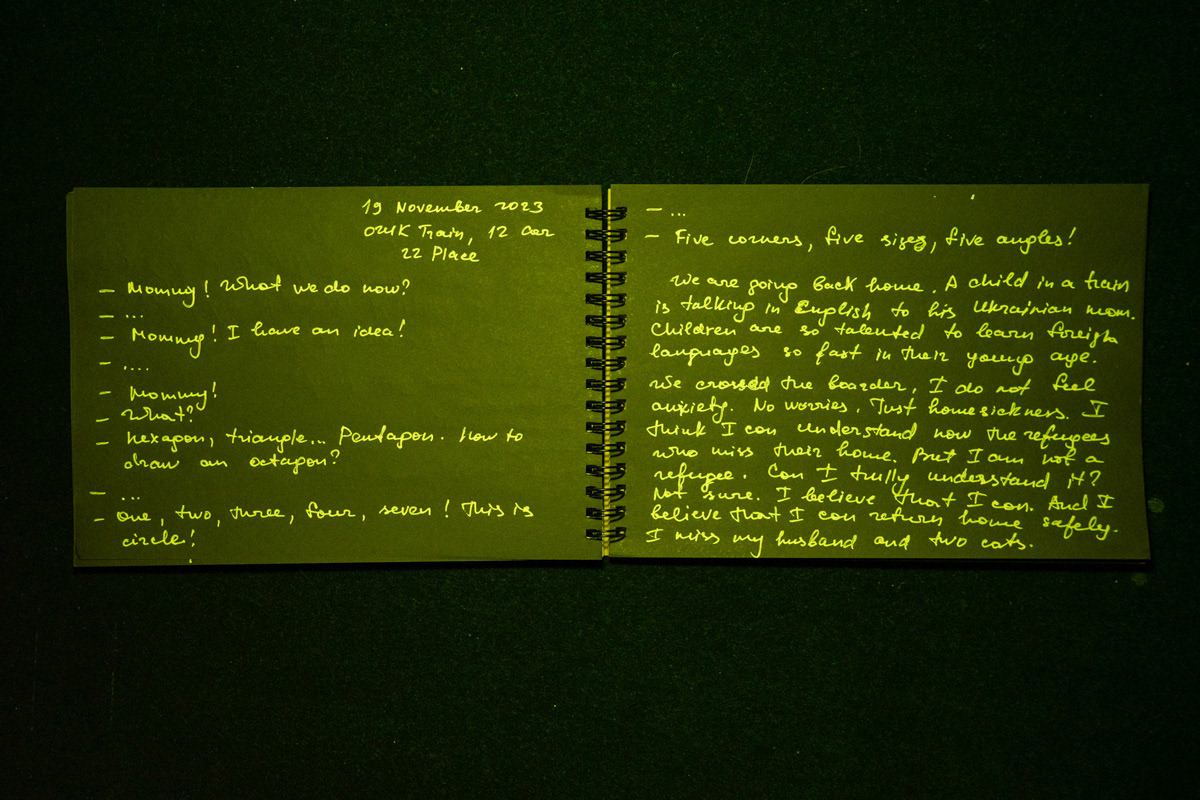 19 November 2023
024K Train, 12 Car
22 Place
— Mommy! What we do now?
— ...
— Mommy! I have an idea!
— ....
— Mommy!
— What?
— hexagon, triangle... Pentagon. How to
draw an octagon?
— ...
— One, two, three, four, seven! This is
circle!
— ...
— Five corners, five sizes, five angles!
We are going back home. A child in a train
is talking in English to his Ukrainian mom.
Children are so talented to learn foreign
languages so fast in their young age.
We crossed the boarder, I do not feel
anxiety. No worries. Just homesickness. I
think I can understand now the refugees
who miss their home. But I am not a
refugee. Can I trully understand it?
Not sure. I believe that I can. And I
believe that I can return home safely.
I miss my husband and two cats.